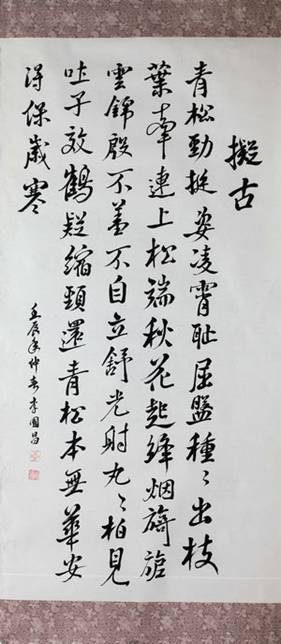 擬古
青松勁挺姿凌霄耻屈盤種〻出枝
葉牽連上松端秋花起絳烟旖旎
雲錦殷不羞不自立舒光射丸〻柏見
吐子效鶴疑縮頸還青松本無華安
得保歲寒
壬辰年仲春李國昌